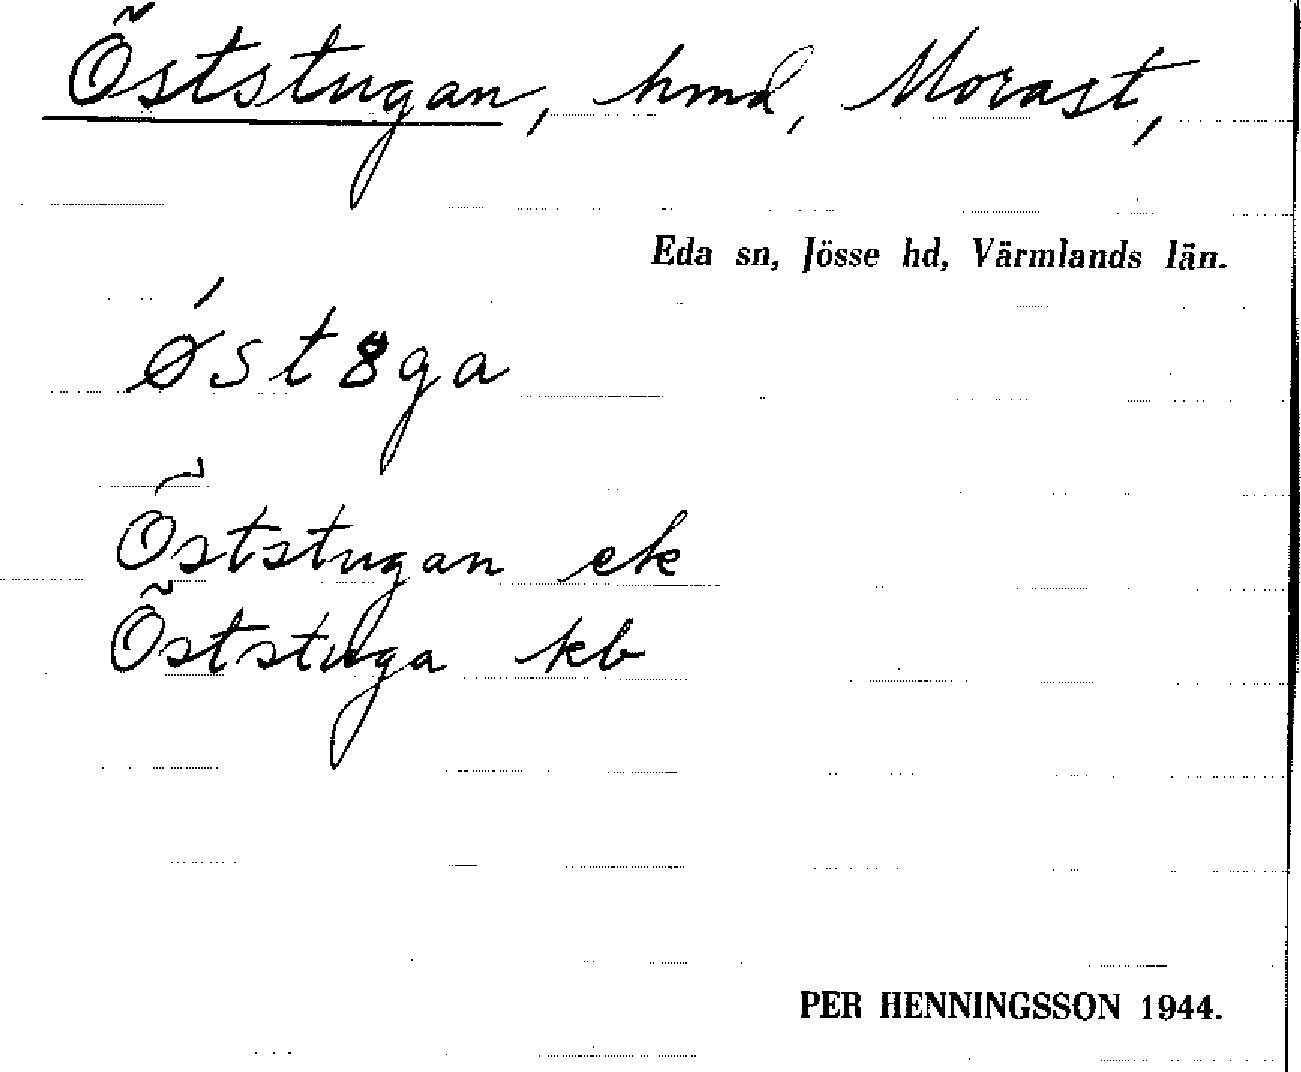 Öststugan, hmd, Morast,
Eda sn, Jösse hd, Värmlands län.
ǿst8ga
Öststugan ek
Öststuga kb
PER HENNINGSSON 1944.